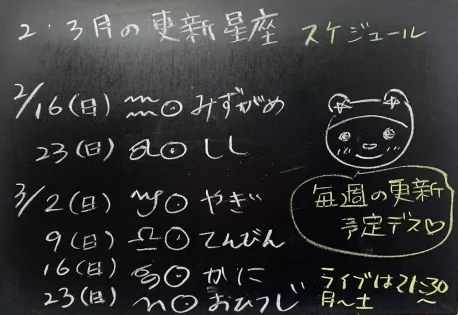 2・3月の更新星座 スケジュール
2/16(日) ♒⊙みずがめ
23(日) ♌⊙しし
3/2(日) ♑⊙やぎ
9(日) ♎⊙てんびん
16(日) ♋⊙かに
23(日) ♈⊙おひつじ
毎週の更新
予定デス♡
ライブは21:30~
月~土